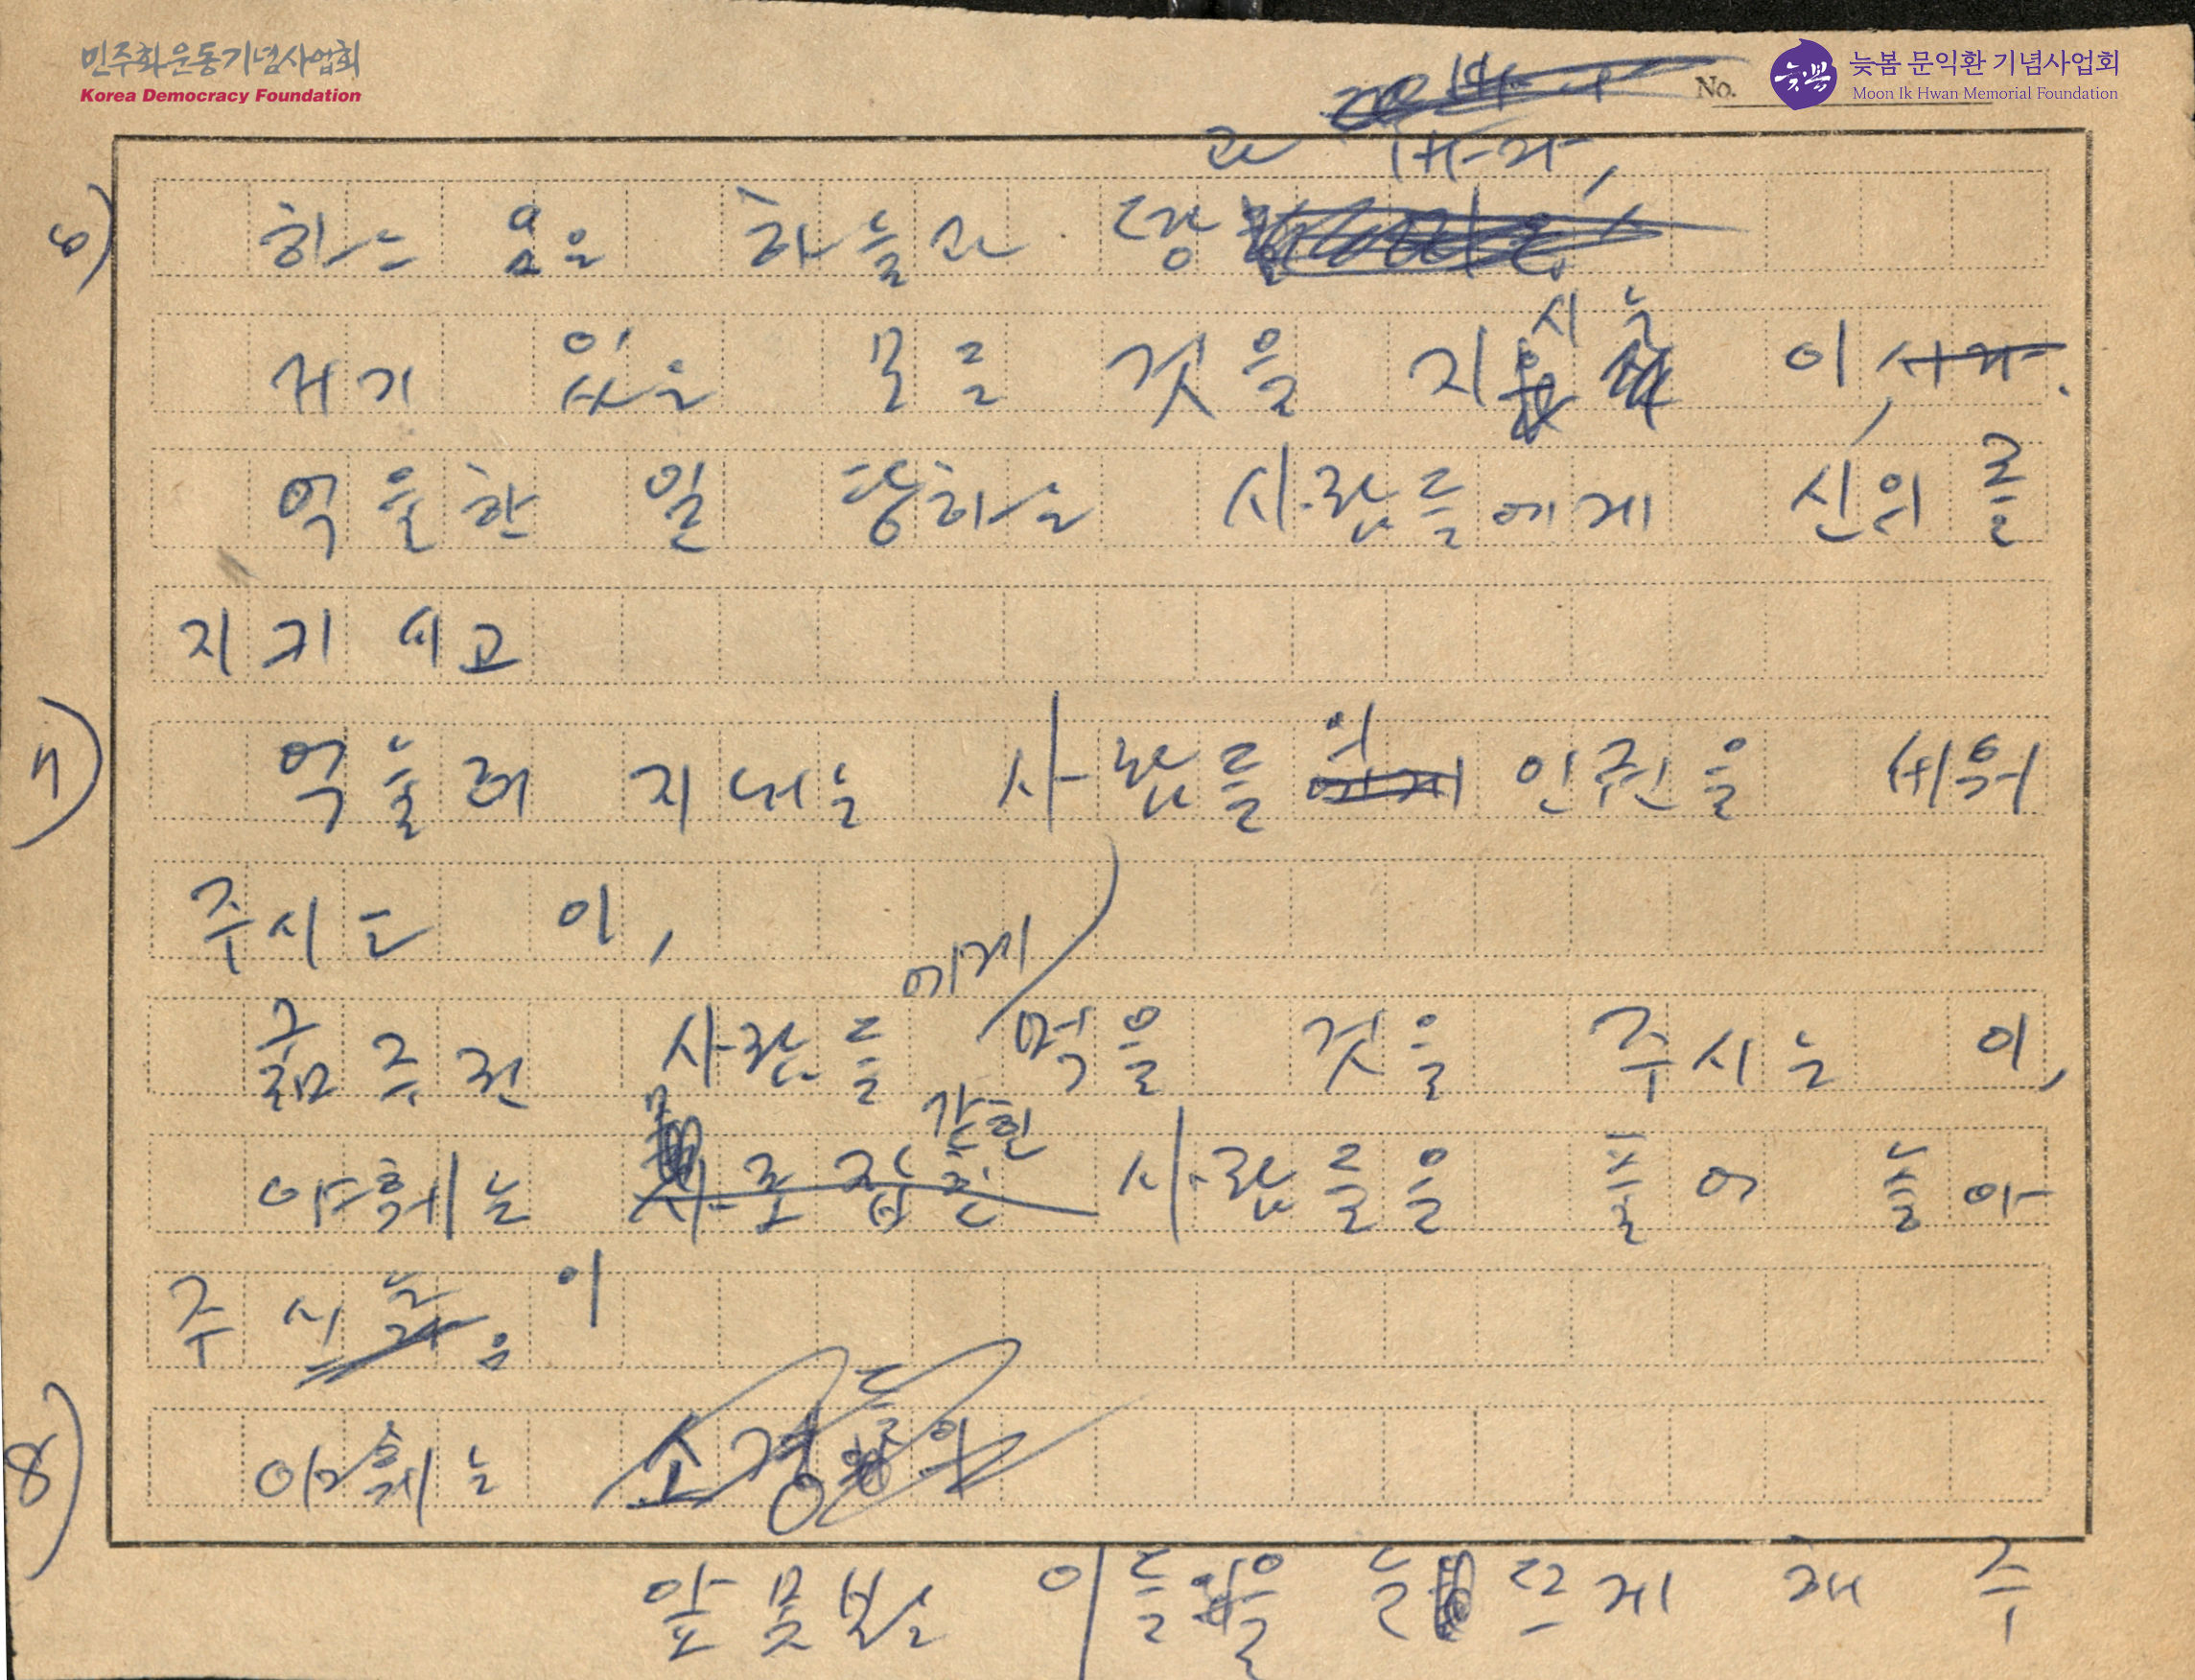 민주화운동기념사업회
Korea Democracy Foundation
No.
늦봄 문익환 기념사업회
Moon Ik Hwan Memorial Foundation
과 바다,
6) 하느님은 하늘과 땅
시는
거기 있는 모든 것을 지 이, 시다.
억울한 일 당하는 사람들에게 신의를
지키시고
7) 억눌려 지내는 사람들의 에게 인권을 세워
주시는 이,
에게
굶주린 사람들 먹을 것을 주시는 이,
갇힌
야훼는 사로잡힌 사람들을 풀어 놓아
주시는 이
8) 야훼는 소경들의
앞 못보는 이들을 눈 뜨게 해 주